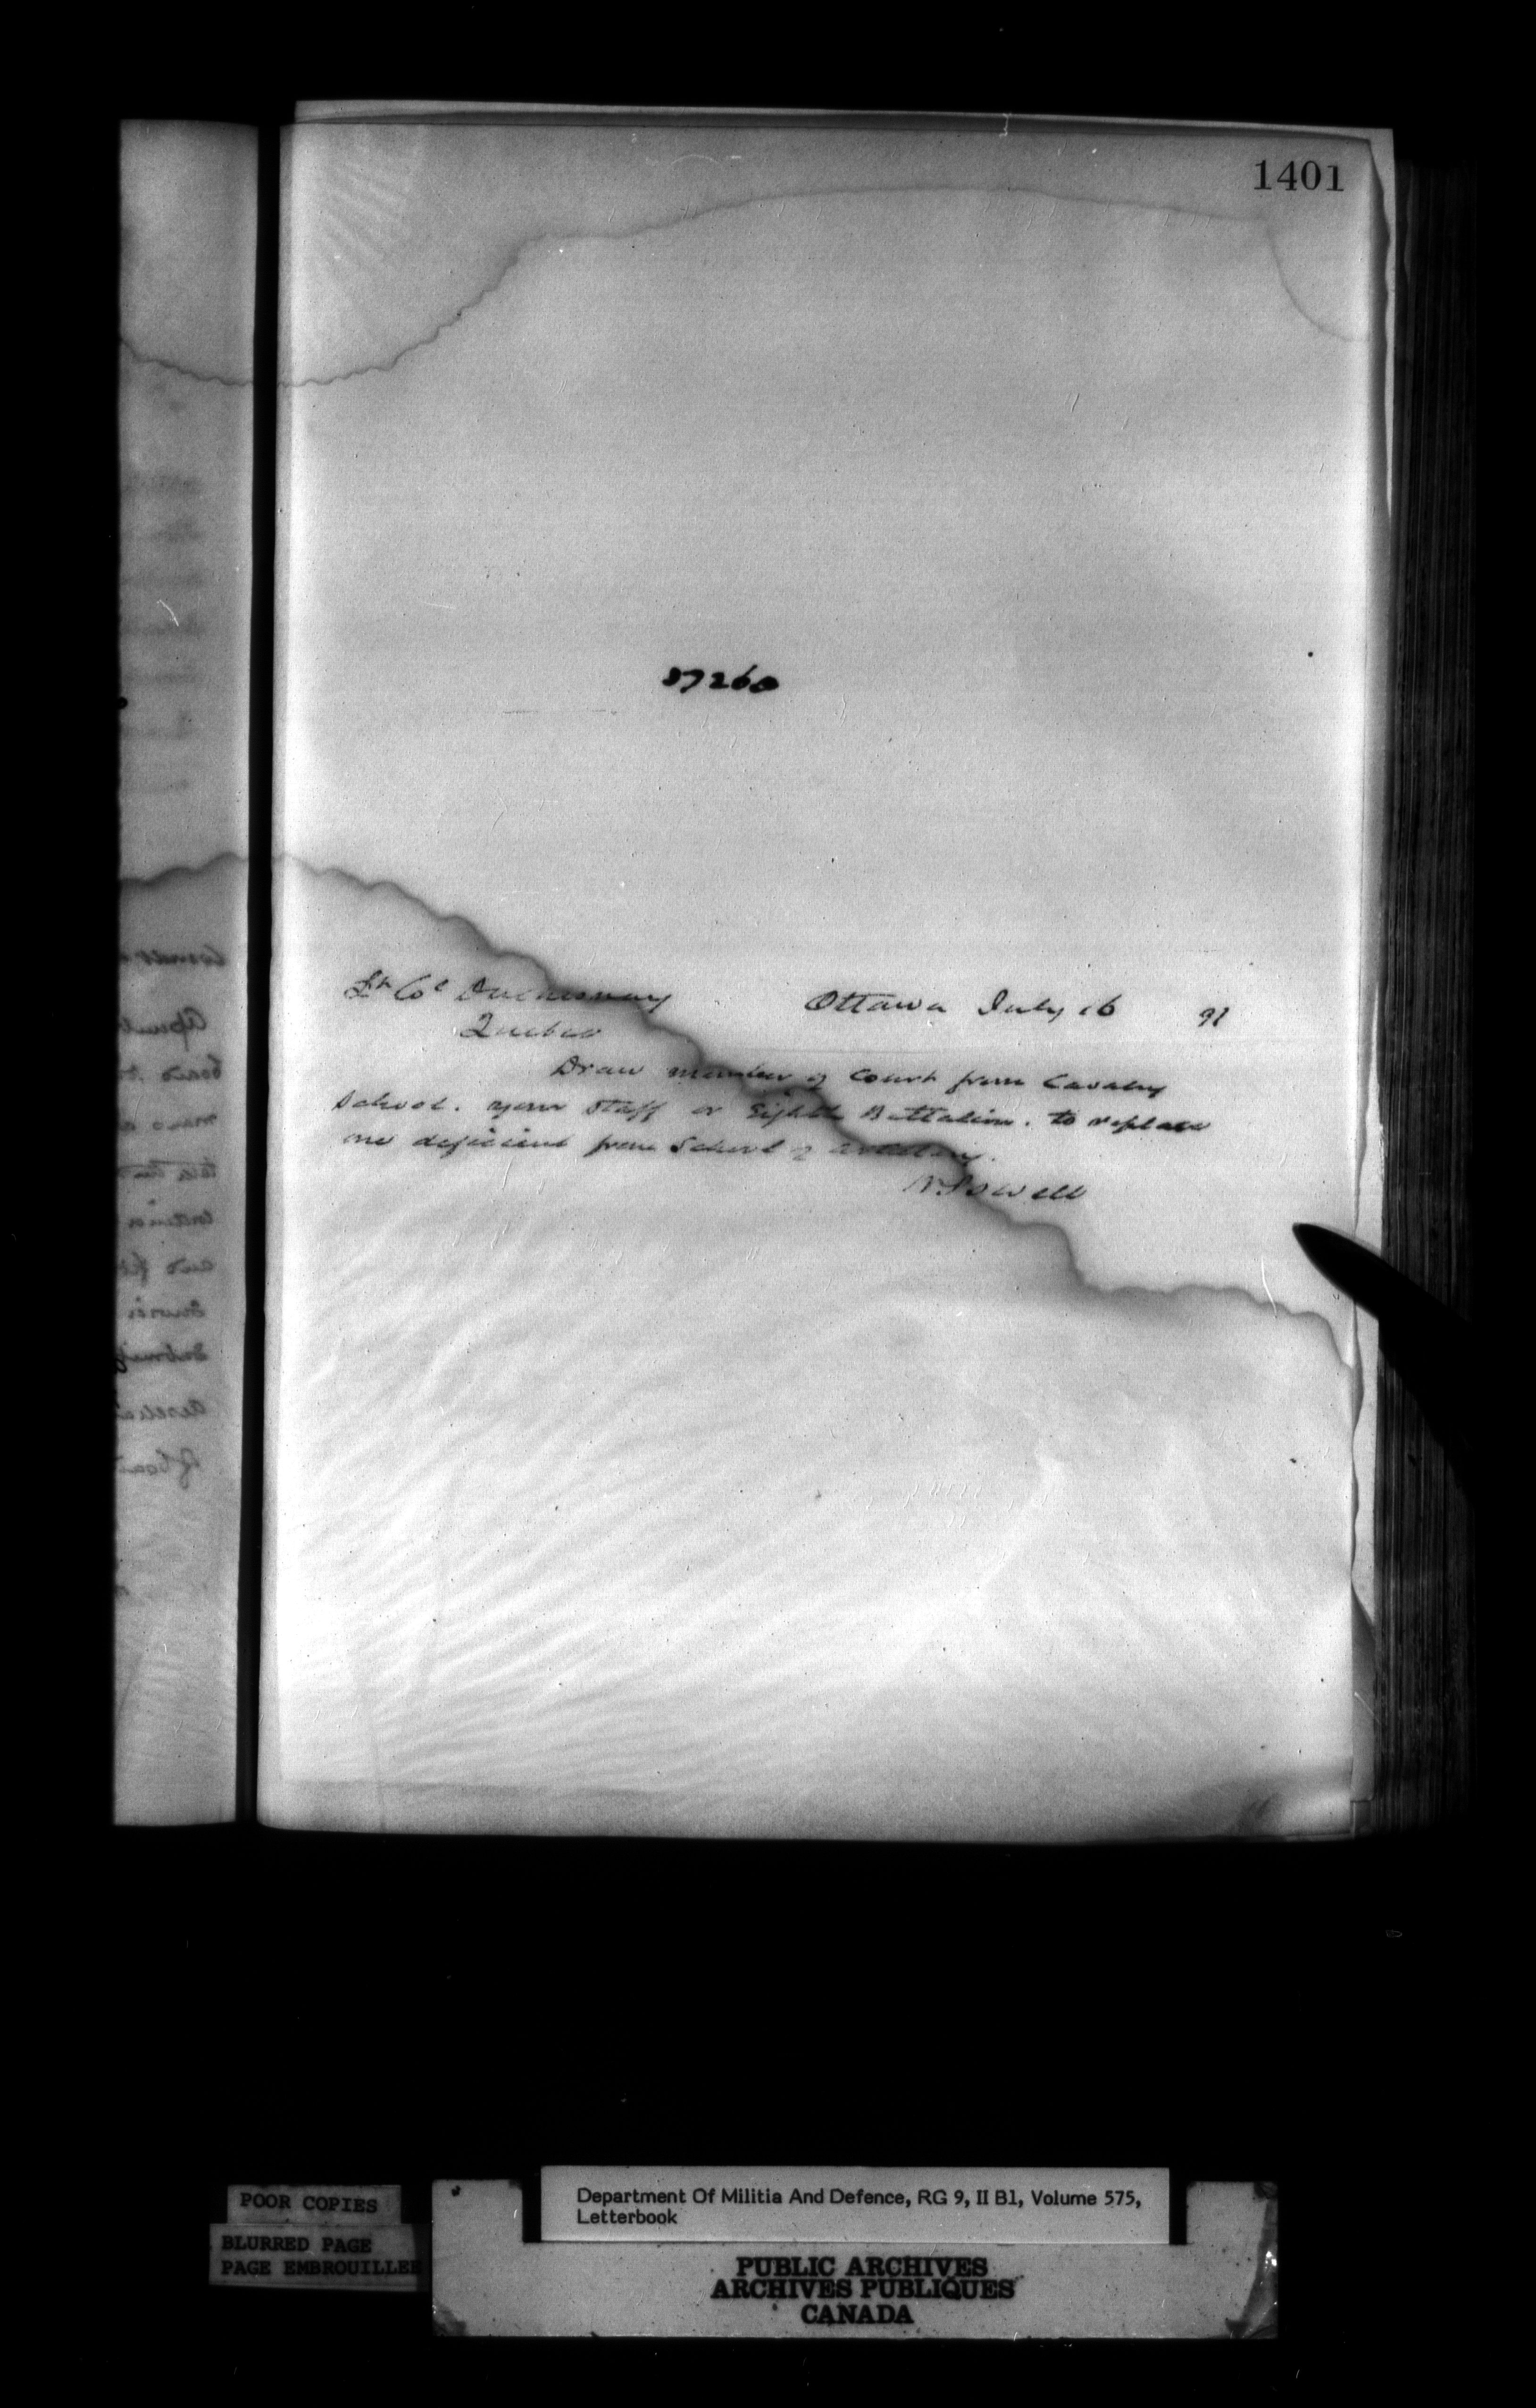 1401
37260
Lt Col Duchesnay Ottawa July 16 91
Quebec
Draw member of Court from Cavalry
School. your Staff or Eighth Battalion. to replace
one deficient from School of Artillery.
W. Powell
POOR COPIES
BLURRED PAGE
PAGE EMBROUILLEE
Department Of Militia And Defence, RG 9, II B1, Volume 575,
Letterbook
PUBLIC ARCHIVES
ARCHIVES PUBLIQUES
CANADA